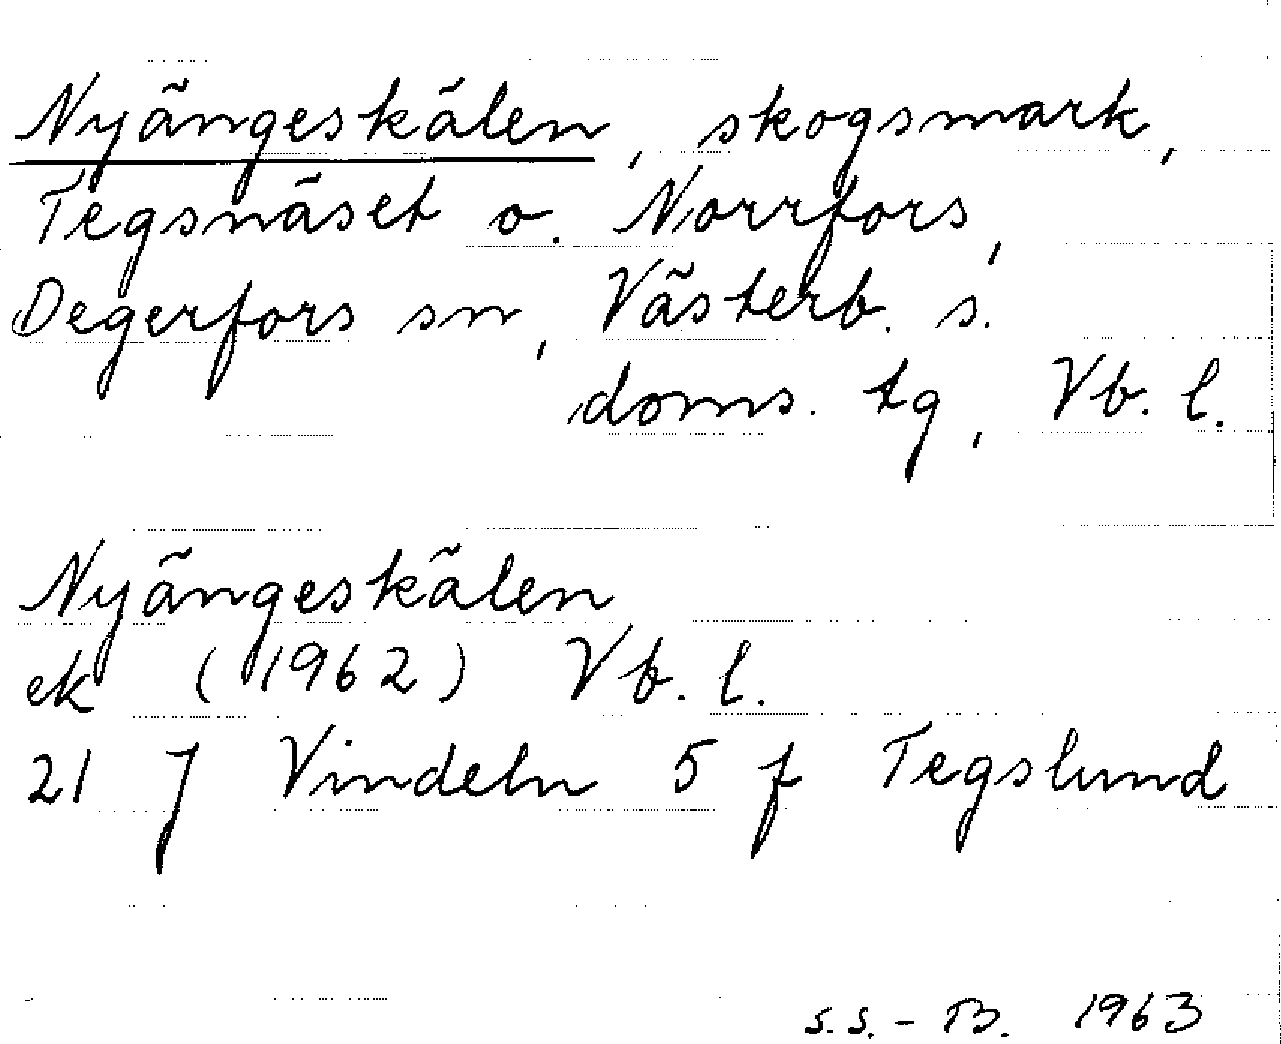 Nyängeskälen, skogsmark,
Tegsnäset o. Norrfors,
Degerfors sn, Västerb. s.
doms. tg, Vb. l.
Nyängeskälen
ek (1962) Vb. l.
21 J Vindeln 5 f Tegslund
S.S.-B. 1963